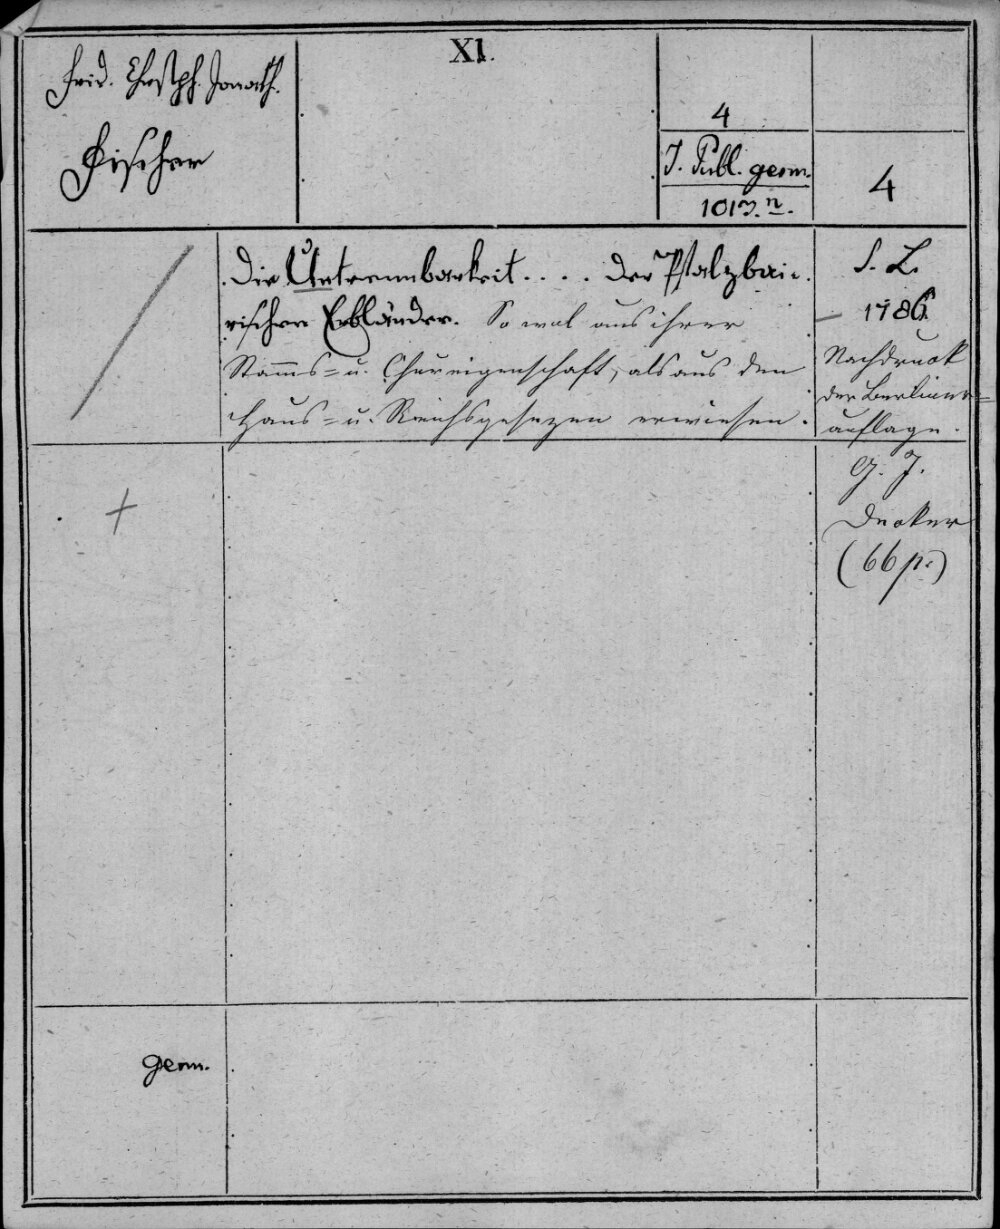 Frid. Chstph. Jonath.
Fischer
XI.
4
J. Publ. germ.
1013. n.
4
Die Untrennbarkeit . . . . der Pfalzbai-
rischen Erbländer. So wol aus ihrer
Stamms- u. Chureigenschaft, als aus den
Haus- u. Reichsgesezen erwiesen.
S. L.
1786.
Nachdruck
der Berliner-
auflage.
G. J.
Decker
(66 p.)
germ.